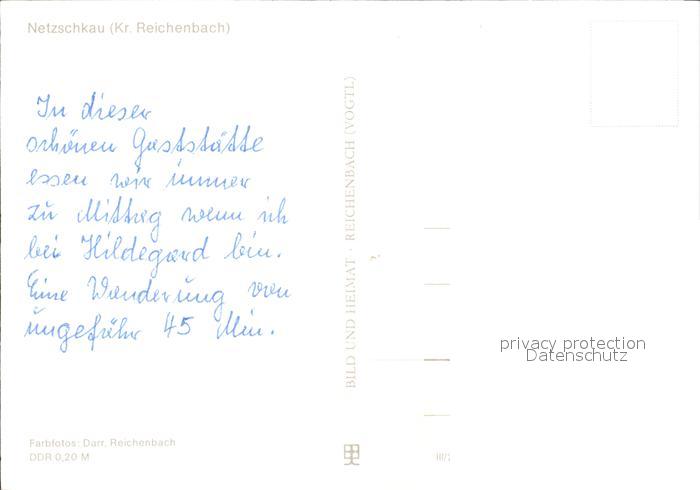 Netzschkau (Kr. Reichenbach)
In dieser
schönen Gaststätte
essen wir immer
zu Mittag wenn ich
bei Hildegard bin.
Eine Wanderung von
ungefähr 45 Min.
Farbfotos: Darr, Reichenbach
DDR 0,20 M
BILD UND HEIMAT · REICHENBACH (VOGTL)
III/
privacy protection
Datenschutz